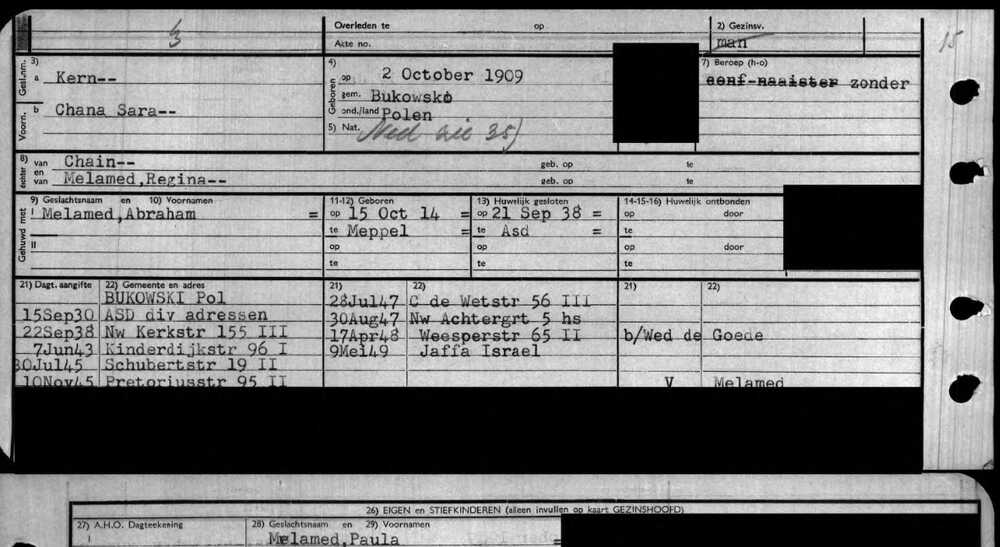 3
Overleden te op
Akte no.
2) Gezinsv.
man
15
3)
Gesl.nm.
a Kern--
Voorn.
b Chana Sara--
4)
Geboren
op 2 October 1909
gem. Bukowsko
ond./land Polen
5) Nat. Ned zie 35)
7) Beroep (h-o)
conf-naaister zonder
8)
echter
van Chain-- geb. op te
en
van Melamed,Regina-- geb. op te
Gehuwd met
9) Geslachtsnaam en 10) Voornamen
I Melamed,Abraham =
II
11-12) Geboren
op 15 Oct 14 =
te Meppel =
op
te
13) Huwelijk gesloten
op 21 Sep 38 =
te Asd =
op
te
14-15-16) Huwelijk ontbonden
op door
te
op door
te
21) Dagt. aangifte 22) Gemeente en adres
BUKOWSKI Pol
15Sep30 ASD div adressen
22Sep38 Nw Kerkstr 155 III
7Jun43 Kinderdijkstr 96 I
30Jul45 Schubertstr 19 II
10Nov45 Pretoriusstr 95 II
21) 22)
28Jul47 C de Wetstr 56 III
30Aug47 Nw Achtergrt 5 hs
17Apr48 Weesperstr 65 II
9Mei49 Jaffa Israel
21) 22)
b/Wed de Goede
V Melamed
26) EIGEN en STIEFKINDEREN (alleen invullen op kaart GEZINSHOOFD)
27) A.H.O. Dagteekening 28) Geslachtsnaam en 29) Voornamen
I Melamed,Paula =